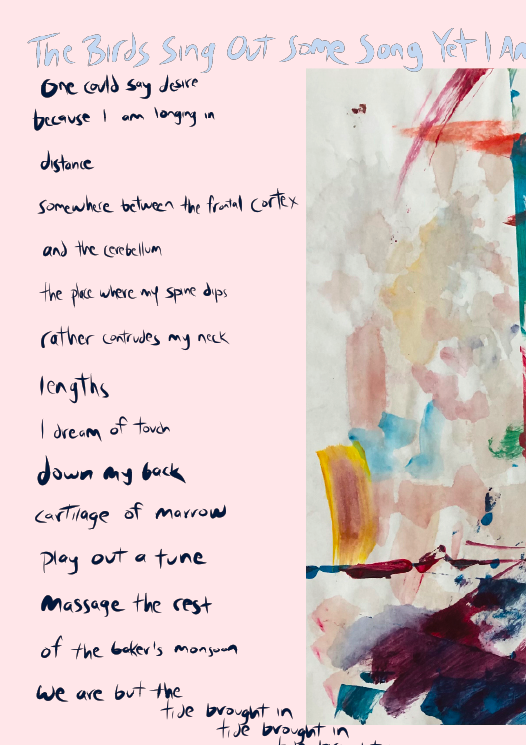 The Birds Sing Out Some Song Yet I Am
One could say desire
because I am longing in
distance
somewhere between the frontal cortex
and the cerebellum
the place where my spine dips
rather contrudes my neck
lengths
I dream of touch
down my back
cartilage of marrow
play out a tune
massage the rest
of the baker's monsoon
we are but the
tide brought in
tide brought in